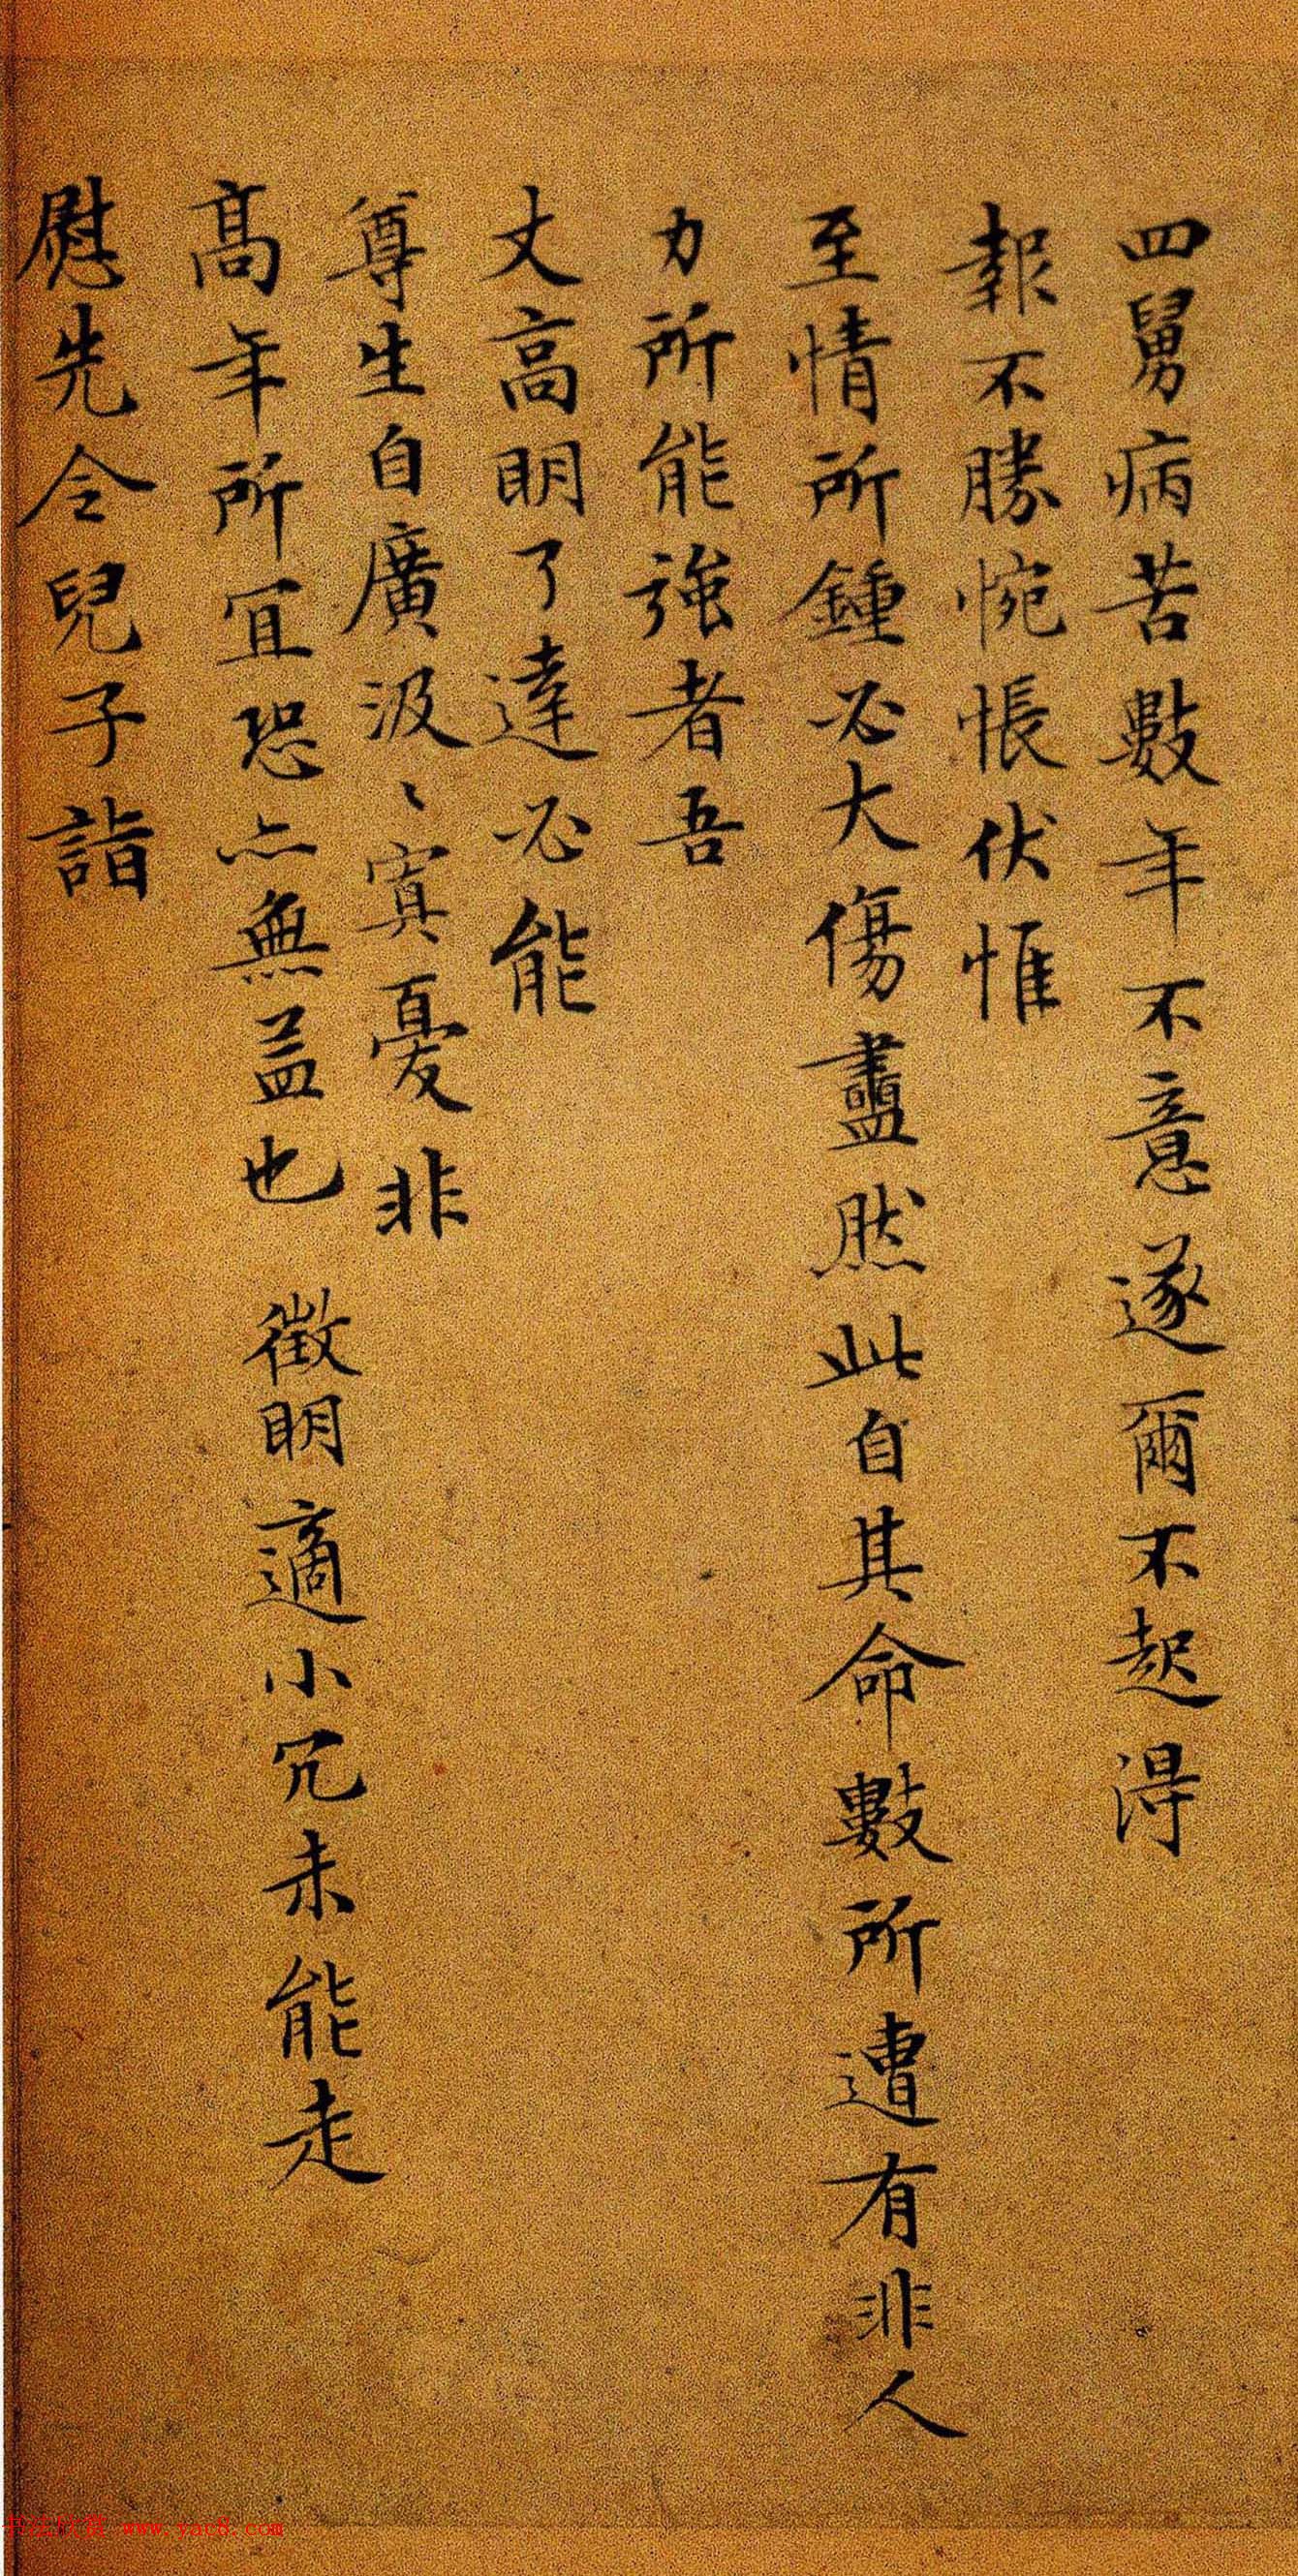 四舅病苦數年不意遂爾不起得
報不勝惋悵伏惟
至情所鍾必大傷盡然此自其命數所遭有非人
力所能強者吾
丈高明了達必能
尊生自廣汲〻寘憂非
高年所宜恐亦無益也徵明適小冗未能走
慰先令兒子詣
书法欣赏 www.yac8.com